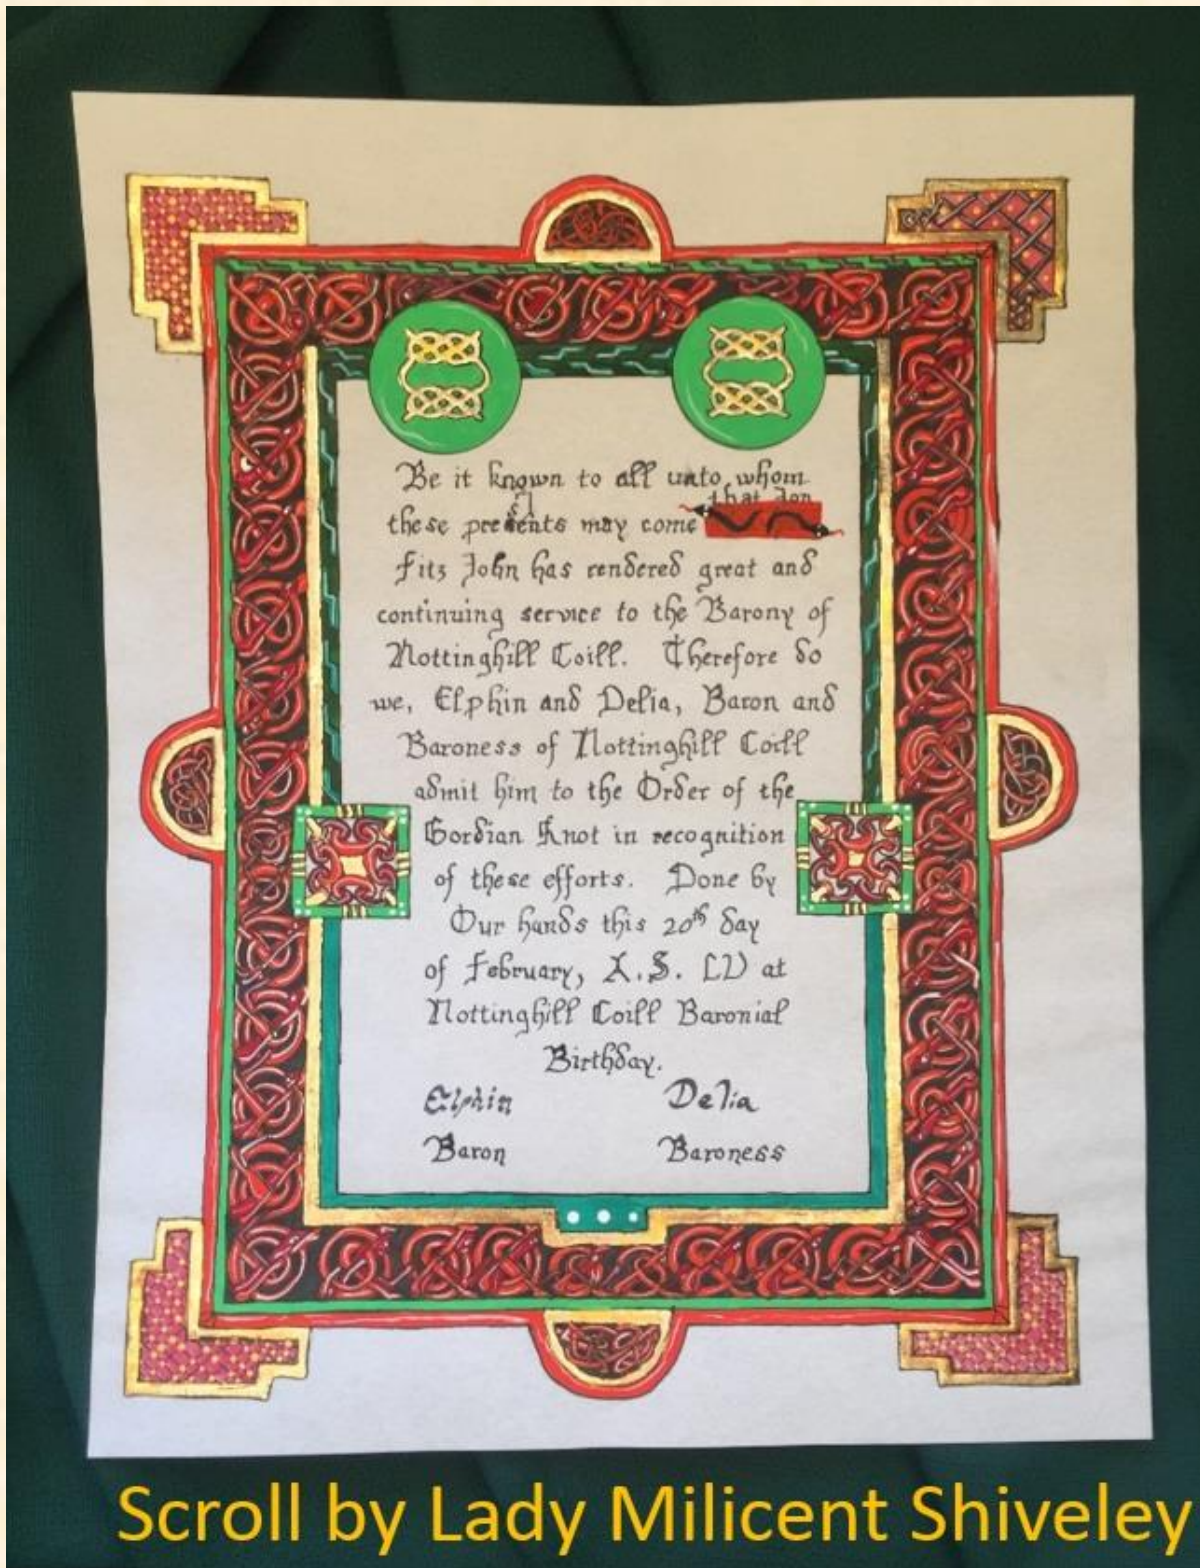 Be it known to all unto whom
that Jon
these presents may come
Fitz John has rendered great and
continuing service to the Barony of
Nottinghill Coill. Therefore do
we, Elphin and Delia, Baron and
Baroness of Nottinghill Coill
admit him to the Order of the
Gordian Knot in recognition
of these efforts. Done by
Our hands this 20th day
of February, A.S. LV at
Nottinghill Coill Baronial
Birthday.
Elphin Delia
Baron Baroness
Scroll by Lady Milicent Shiveley